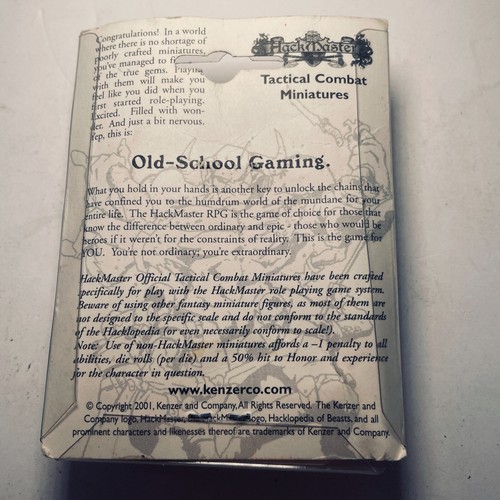 Congratulations! In a world
where there is no shortage of
poorly crafted miniatures,
you've managed to
of the true gems. Playing
with them will make you
feel like you did when you
first started role-playing.
Excited. Filled with won-
der. And just a bit nervous.
Yep, this is:
HackMaster
Tactical Combat
Miniatures
Old-School Gaming.
What you hold in your hands is another key to unlock the chains that
have confined you to the humdrum world of the mundane for your
entire life. The HackMaster RPG is the game of choice for those that
know the difference between ordinary and epic - those who would be
heroes if it weren't for the constraints of reality. This is the game for
YOU. You're not ordinary; you're extraordinary.
HackMaster Official Tactical Combat Miniatures have been crafted
specifically for play with the HackMaster role playing game system.
Beware of using other fantasy miniature figures, as most of them are
not designed to the specific scale and do not conform to the standards
of the Hacklopedia (or even necessarily conform to scale!).
Note: Use of non-HackMaster miniatures affords a –1 penalty to all
abilities, die rolls (per die) and a 50% hit to Honor and experience
for the character in question.
www.kenzerco.com
© Copyright 2001, Kenzer and Company, All Rights Reserved. The Kenzer and
Company logo, HackMaster, HackMaster logo, Hacklopedia of Beasts, and all
prominent characters and likenesses thereof are trademarks of Kenzer and Company.